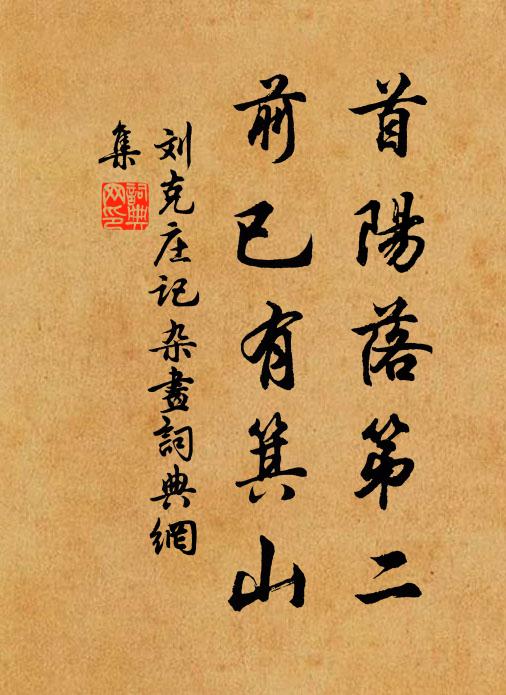 首陽落第二
前已有箕山
刘克庄记杂畫詞典網
集
詞典网印